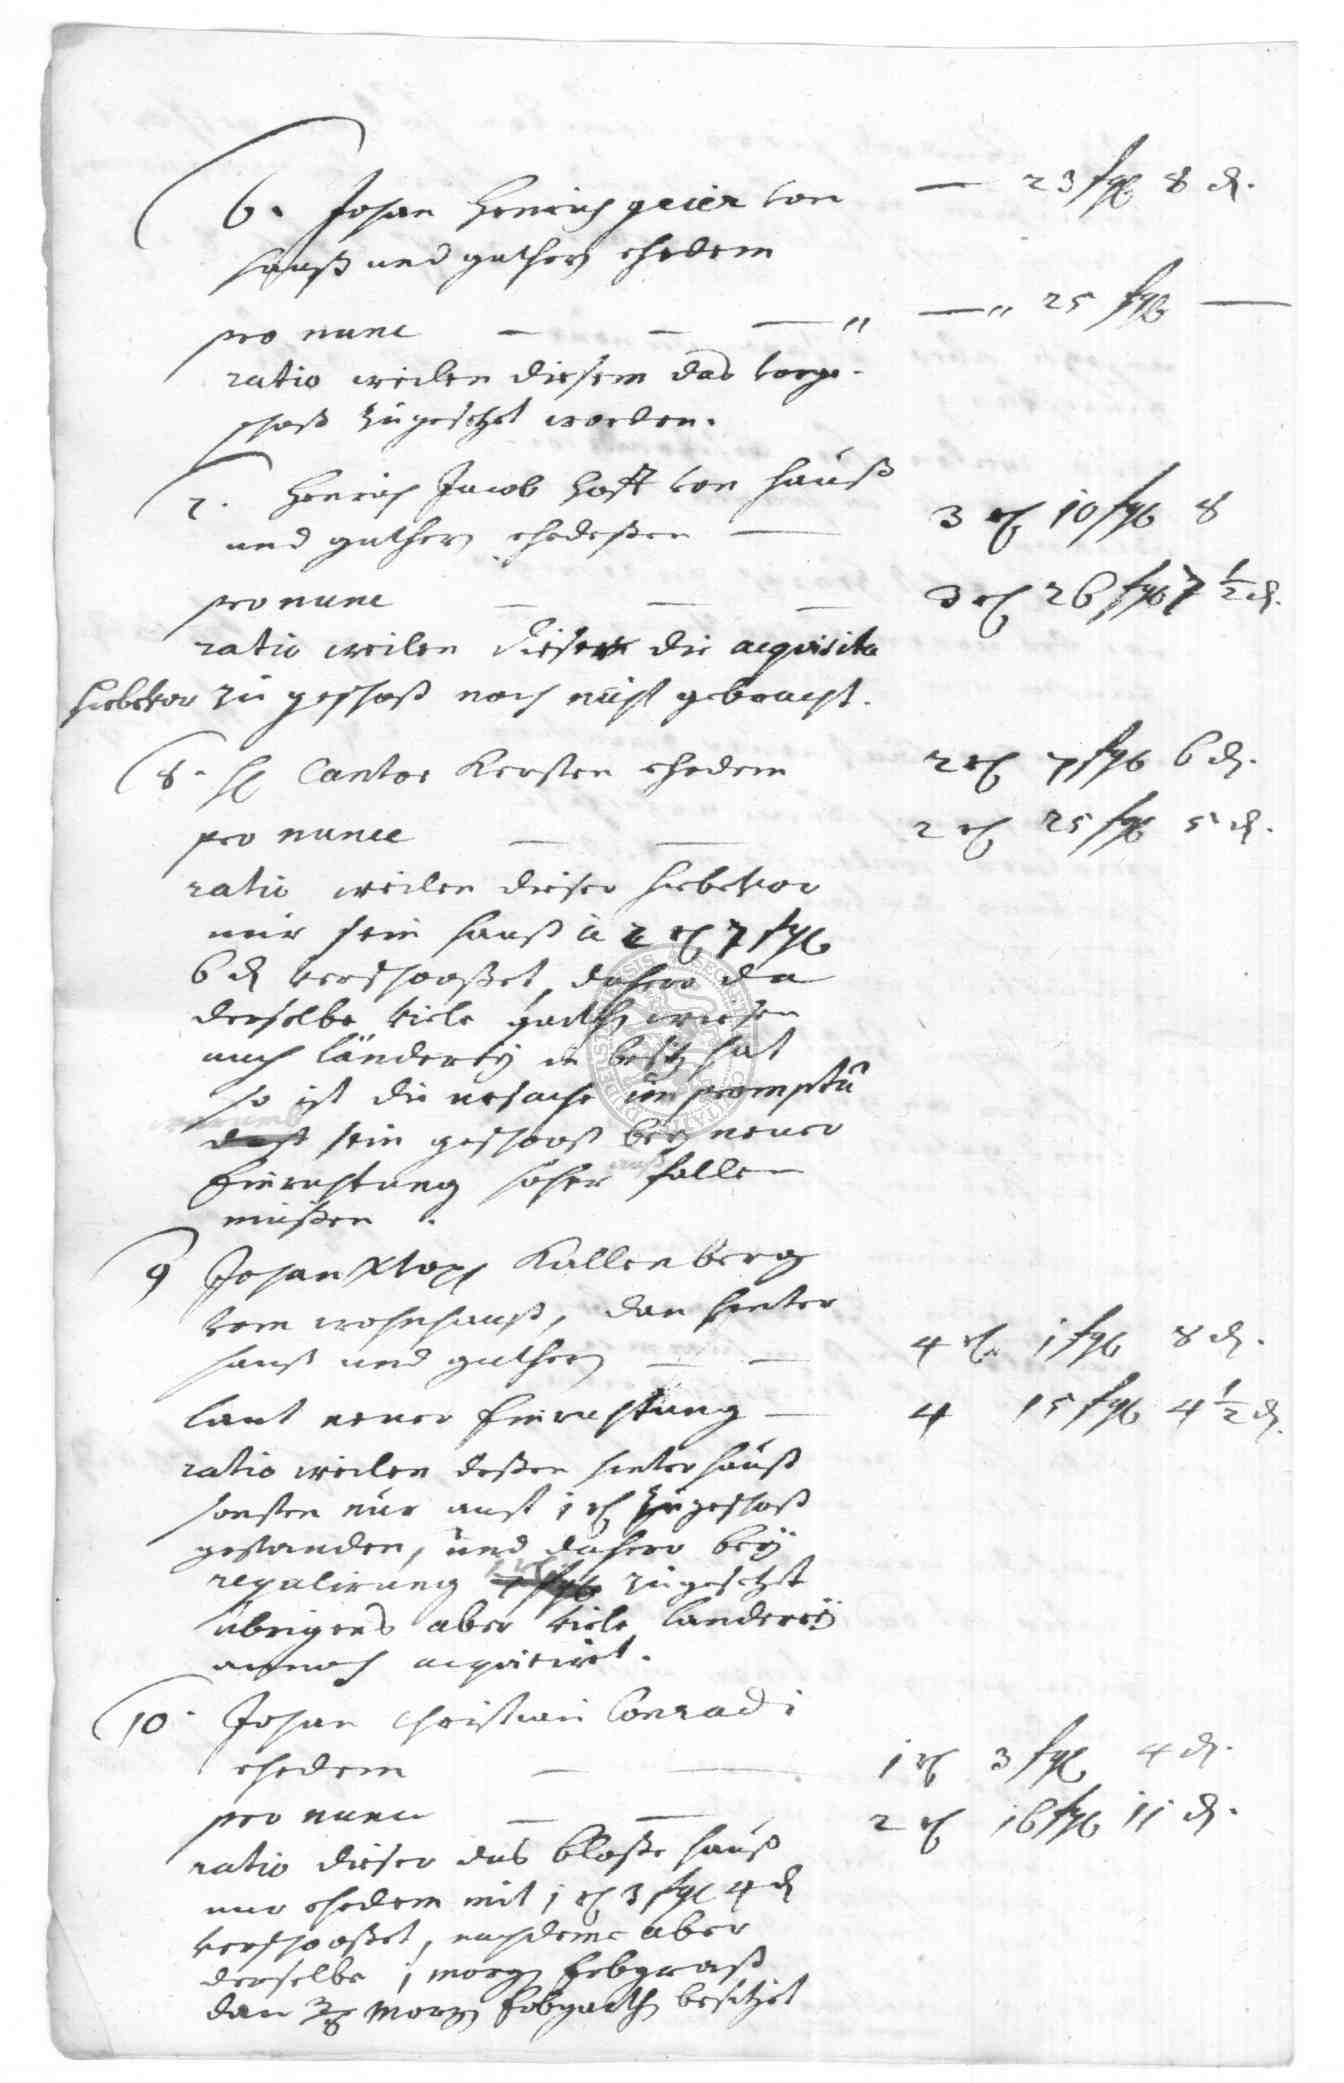 6. Johan Henrich geier von — 23 sgl 8 d.
hauß und guthern ehedem
pro nunc — — — " — " 25 sgl —
ratio weilen diesem das vorge-
schoß zugesetzet worden.
7. Henrich Jacob Hofft von hauß
und guthern ehedeßen — 3 rl 10 sgl 8
pro nunc — — — 3 rl 26 sgl 7 ½ d.
ratio weilen dieser die acquisita
hiebevor zu geschoß noch nicht gebracht.
8. H Cantor Kersten ehedem 2 rl 7 sgl 6 d.
pro nunc — — 2 rl 25 sgl 5 d.
ratio weilen dieser hiebevor
nur sein hauß à 2 rl 7 sgl
6 d verschoßet, dahero da
derselbe viele garth wiesen
auch länderey in besitz hat
so ist die uhrsache in promptu
sein geschoß bey neuer
Einrichtung höher fallen
müßen.
9 Johan Xtoph Kallenberg
vom wohnhauß, dan hinter
hauß und guthern — — 4 rl. 1 sgl 8 d.
laut neuer Einrichtung — 4 15 sgl 4 ½ d.
ratio weilen deßen hinter hauß
sonsten nur auf 1 rl zu geschoß
gestanden, und dahero bey
regulirung zugesetzet
übrigens aber viele länderey
annoch acquirirt.
10. Johan Christian Conradi
ehedem — — 1 rl 3 sgl 4 d.
pro nunc — — 2 rl 16 sgl 11 d.
ratio dieser das bloße hauß
nur ehedem mit 1 rl 3 sgl 4 d
verschoßet, nachdeme aber
derselbe 1 morg Erbgraß
dan morg Erbgarth besitzet